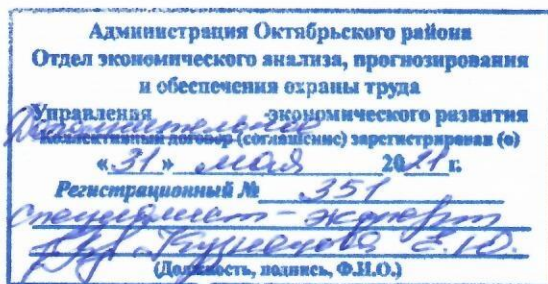 Администрация Октябрьского района
Отдел экономического анализа, прогнозирования
и обеспечения охраны труда
Управления экономического развития
Дополнительное
Коллективный договор (соглашение) зарегистрирован (о)
«31» мая 2021 г.
Регистрационный № 351
специалист-эксперт
Кузнецова Е.Ю.
(Должность, подпись, Ф.И.О.)